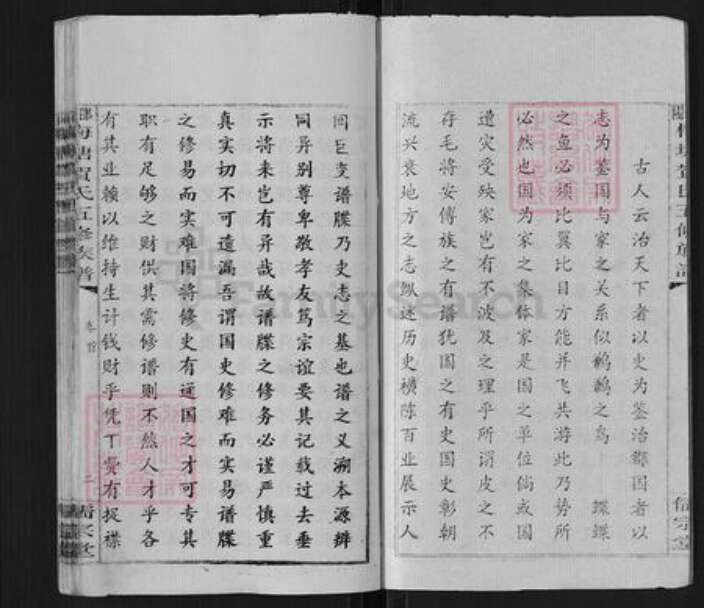 古人云治天下者以史为鉴治郡国者以
志为鉴国与家之关系似鹣鹣之鸟 鲽鲽
之鱼必须比翼比目方能并飞共游此乃势所
必然也国为家之集体家是国之单位倘或国
遭灾受殃家岂有不波及之理乎所谓皮之不
存毛将安傅族之有谱犹国之有史国史彰朝
流兴衰地方之志纵述历史横陈百业展示人
同巨变谱牒乃史志之基也谱之义溯本源辩
同异别尊卑敬孝友笃宗谊要其记载过去垂
示将来岂有异哉故谱牒之修务必谨严慎重
真实切不可遗漏吾谓国史修难而实易谱牒
之修易而实难国将修史有通国之才可专其
职有足够之财供其需修谱则不然人才乎各
有其业赖以维持生计钱财乎凭丁费有捉襟
贺氏五修族谱
卷首
二
信宗堂
FamilySearch